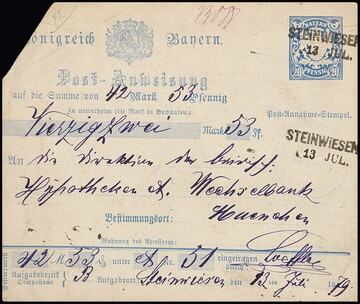 Königreich Bayern.
BAYERN
20 PFENNIG 20
STEINWIESEN
13 JUL.
Post-Anweisung
auf die Summe von 42 Mark 53 Pfennig
Zu wiederholen (die Mark in Buchstaben.)
Post-Annahme-Stempel.
Vierzigzwei Mark 53 Pf.
STEINWIESEN
13 JUL.
An die Direktion der bayrisch.
Hypothekn & Wechselbank
Bestimmungsort: Muenchen
Wohnung des Adressaten:
42 M. 53 unter Nr. 51 eingetragen
durch:
Aufgabebezirk B Aufgabeort Steinwiesen 13 Juli 1879